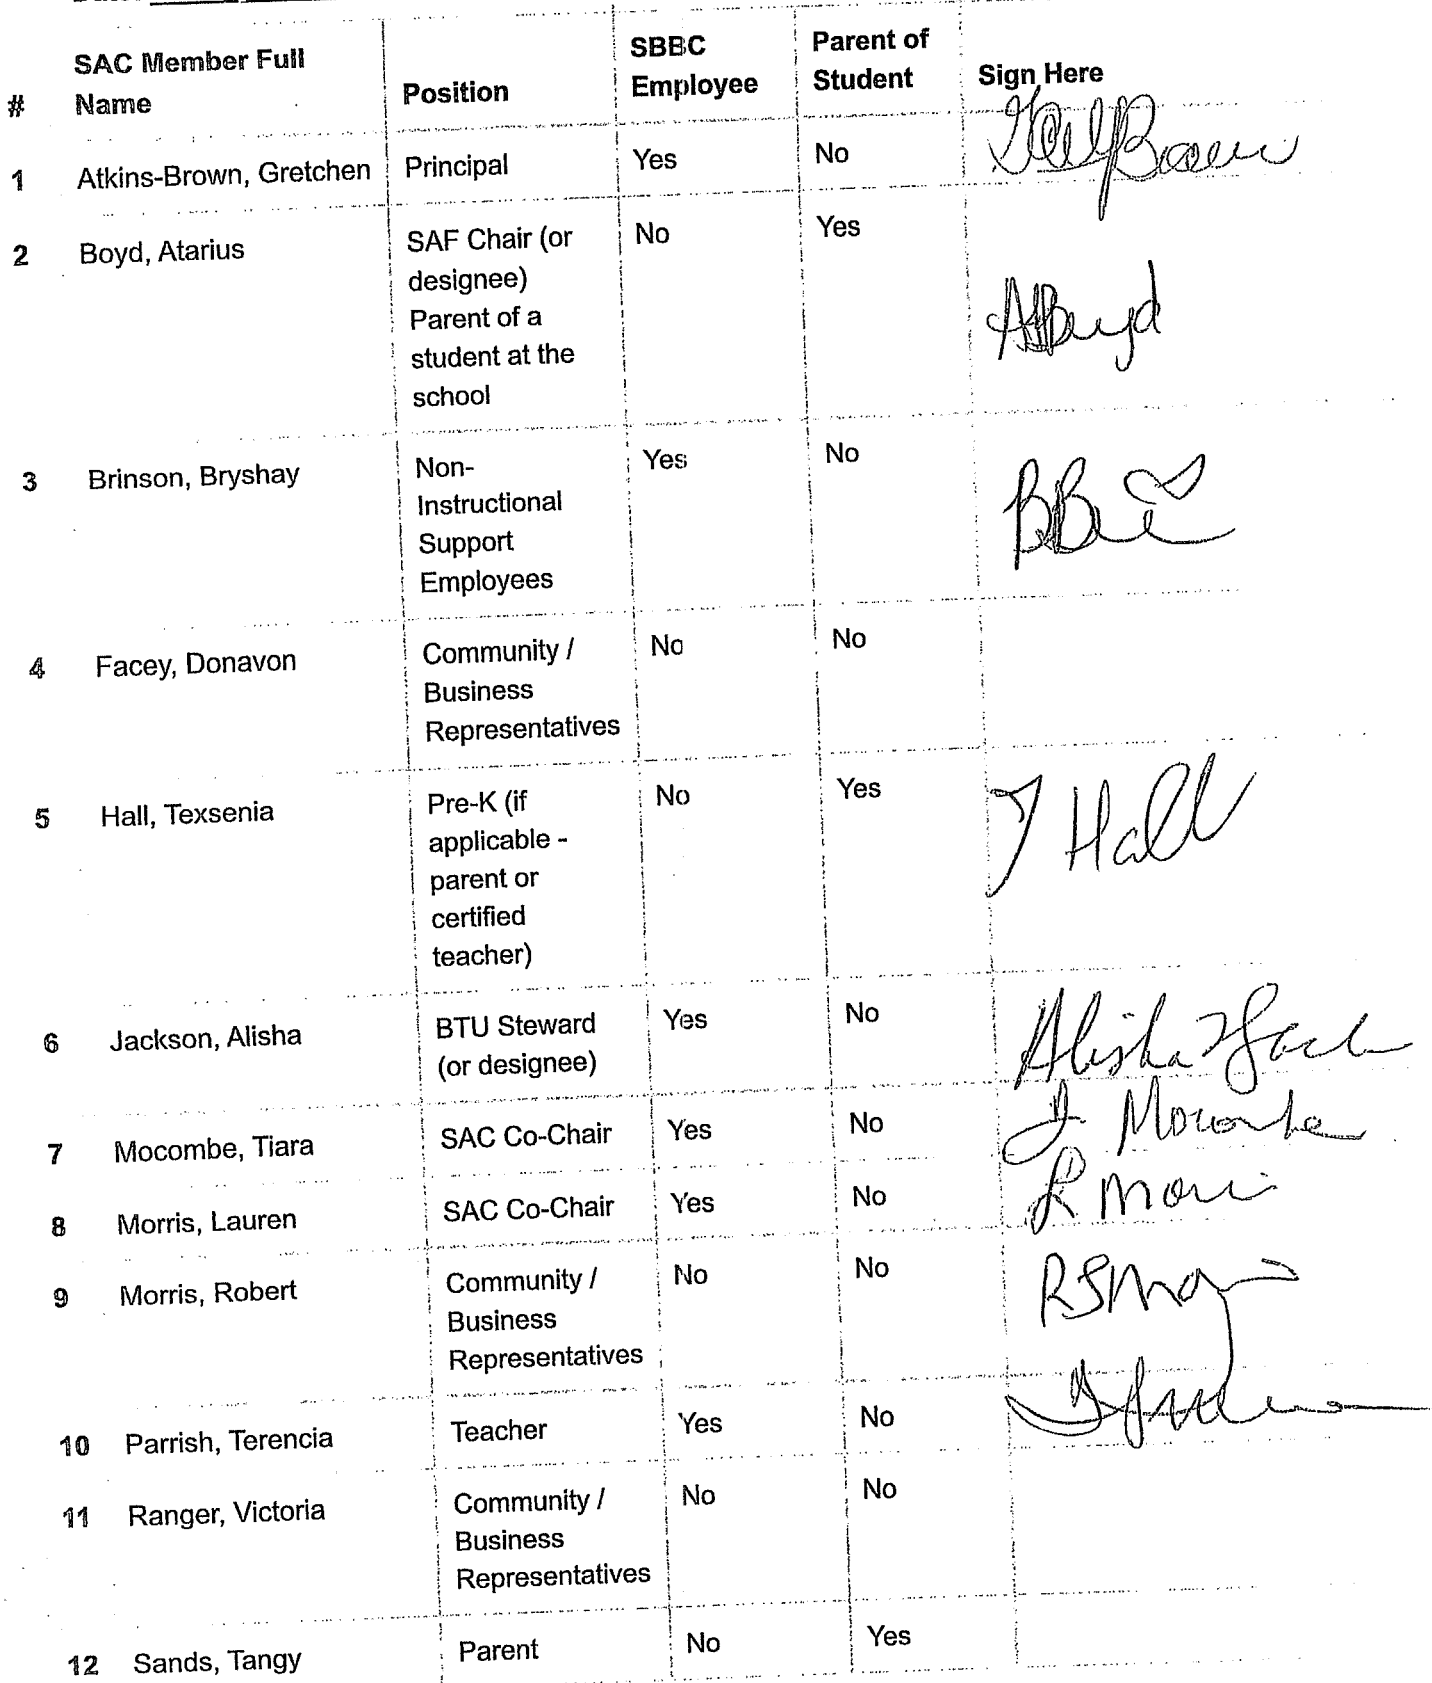 SAC Member Full Name
Position
SBBC Employee
Parent of Student
Sign Here
#
1 Atkins-Brown, Gretchen Principal Yes No
2 Boyd, Atarius SAF Chair (or No Yes
designee)
Parent of a
student at the
school
ABoyd
3 Brinson, Bryshay Non- Yes No
Instructional
Support
Employees
4 Facey, Donavon Community / No No
Business
Representatives
5 Hall, Texsenia Pre-K (if No Yes T Hall
applicable -
parent or
certified
teacher)
6 Jackson, Alisha BTU Steward Yes No Alisha Jack
(or designee)
7 Mocombe, Tiara SAC Co-Chair Yes No T. Mocombe
8 Morris, Lauren SAC Co-Chair Yes No L Morris
9 Morris, Robert Community / No No
Business
Representatives
10 Parrish, Terencia Teacher Yes No
11 Ranger, Victoria Community / No No
Business
Representatives
12 Sands, Tangy Parent No Yes